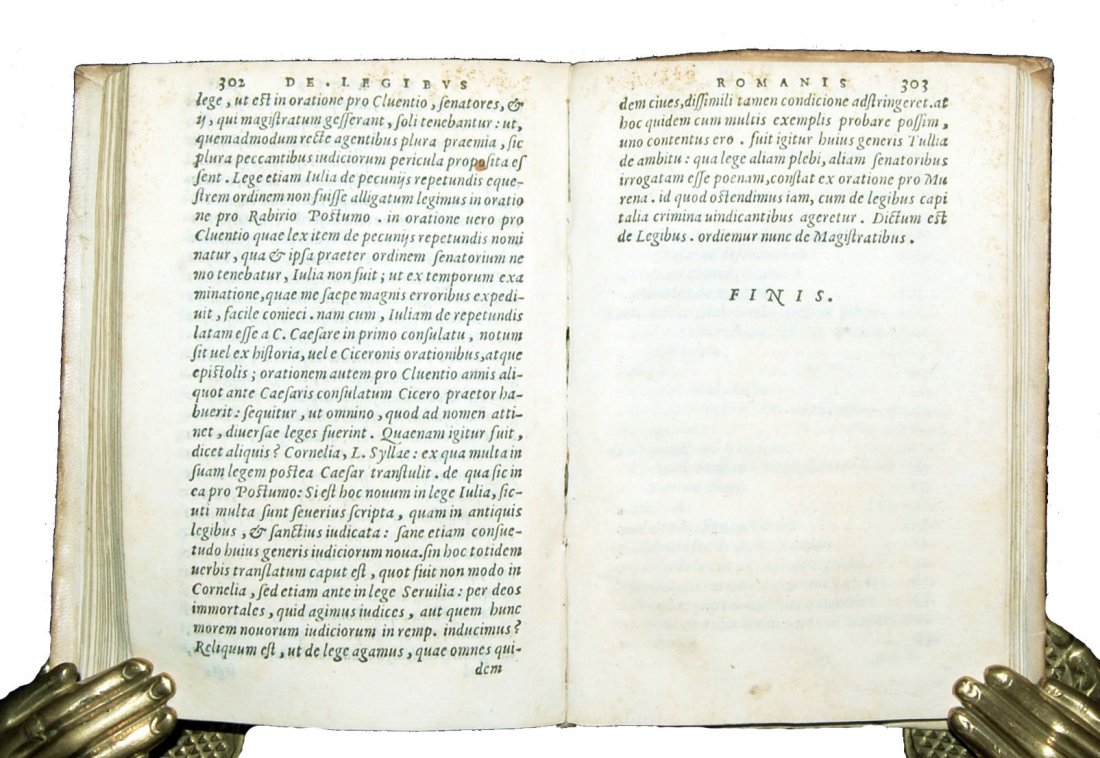 302 DE. LEGIBVS
lege, ut est in oratione pro Cluentio, senatores, &
ij, qui magistratum gesserant, soli tenebantur: ut,
quemadmodum recte agentibus plura praemia, sic
plura peccantibus iudiciorum pericula proposita es
sent. Lege etiam Iulia de pecunijs repetundis eque-
strem ordinem non fuisse alligatum legimus in oratio
ne pro Rabirio Postumo. in oratione uero pro
Cluentio quae lex item de pecunijs repetundis nomi
natur, qua & ipsa praeter ordinem senatorium ne
mo tenebatur, Iulia non fuit; ut ex temporum exa
minatione, quae me saepe magnis erroribus expedi-
uit, facile conieci. nam cum, Iuliam de repetundis
latam esse a C. Caesare in primo consulatu, notum
sit uel ex historia, uel e Ciceronis orationibus, atque
epistolis; orationem autem pro Cluentio annis ali-
quot ante Caesaris consulatum Cicero praetor ha-
buerit: sequitur, ut omnino, quod ad nomen atti-
net, diuersae leges fuerint. Quaenam igitur fuit,
dicet aliquis? Cornelia, L. Syllae: ex qua multa in
suam legem postea Caesar transtulit. de qua sic in
ea pro Postumo: Si est hoc nouum in lege Iulia, sic-
uti multa sunt seuerius scripta, quam in antiquis
legibus, & sanctius iudicata: sane etiam consue-
tudo huius generis iudiciorum noua. sin hoc totidem
uerbis translatum caput est, quot fuit non modo in
Cornelia, sed etiam ante in lege Seruilia: per deos
immortales, quid agimus iudices, aut quem hunc
morem nouorum iudiciorum in remp. inducimus?
Reliquum est, ut de lege agamus, quae omnes qui-
dem
ROMANIS 303
dem ciues, dissimili tamen condicione adstringeret. at
hoc quidem cum multis exemplis probare possim,
uno contentus ero. fuit igitur huius generis Tullia
de ambitu: qua lege aliam plebi, aliam senatoribus
irrogatam esse poenam, constat ex oratione pro Mu
rena. id quod ostendimus iam, cum de legibus capi
talia crimina uindicantibus ageretur. Dictum est
de Legibus. ordiemur nunc de Magistratibus.
FINIS.